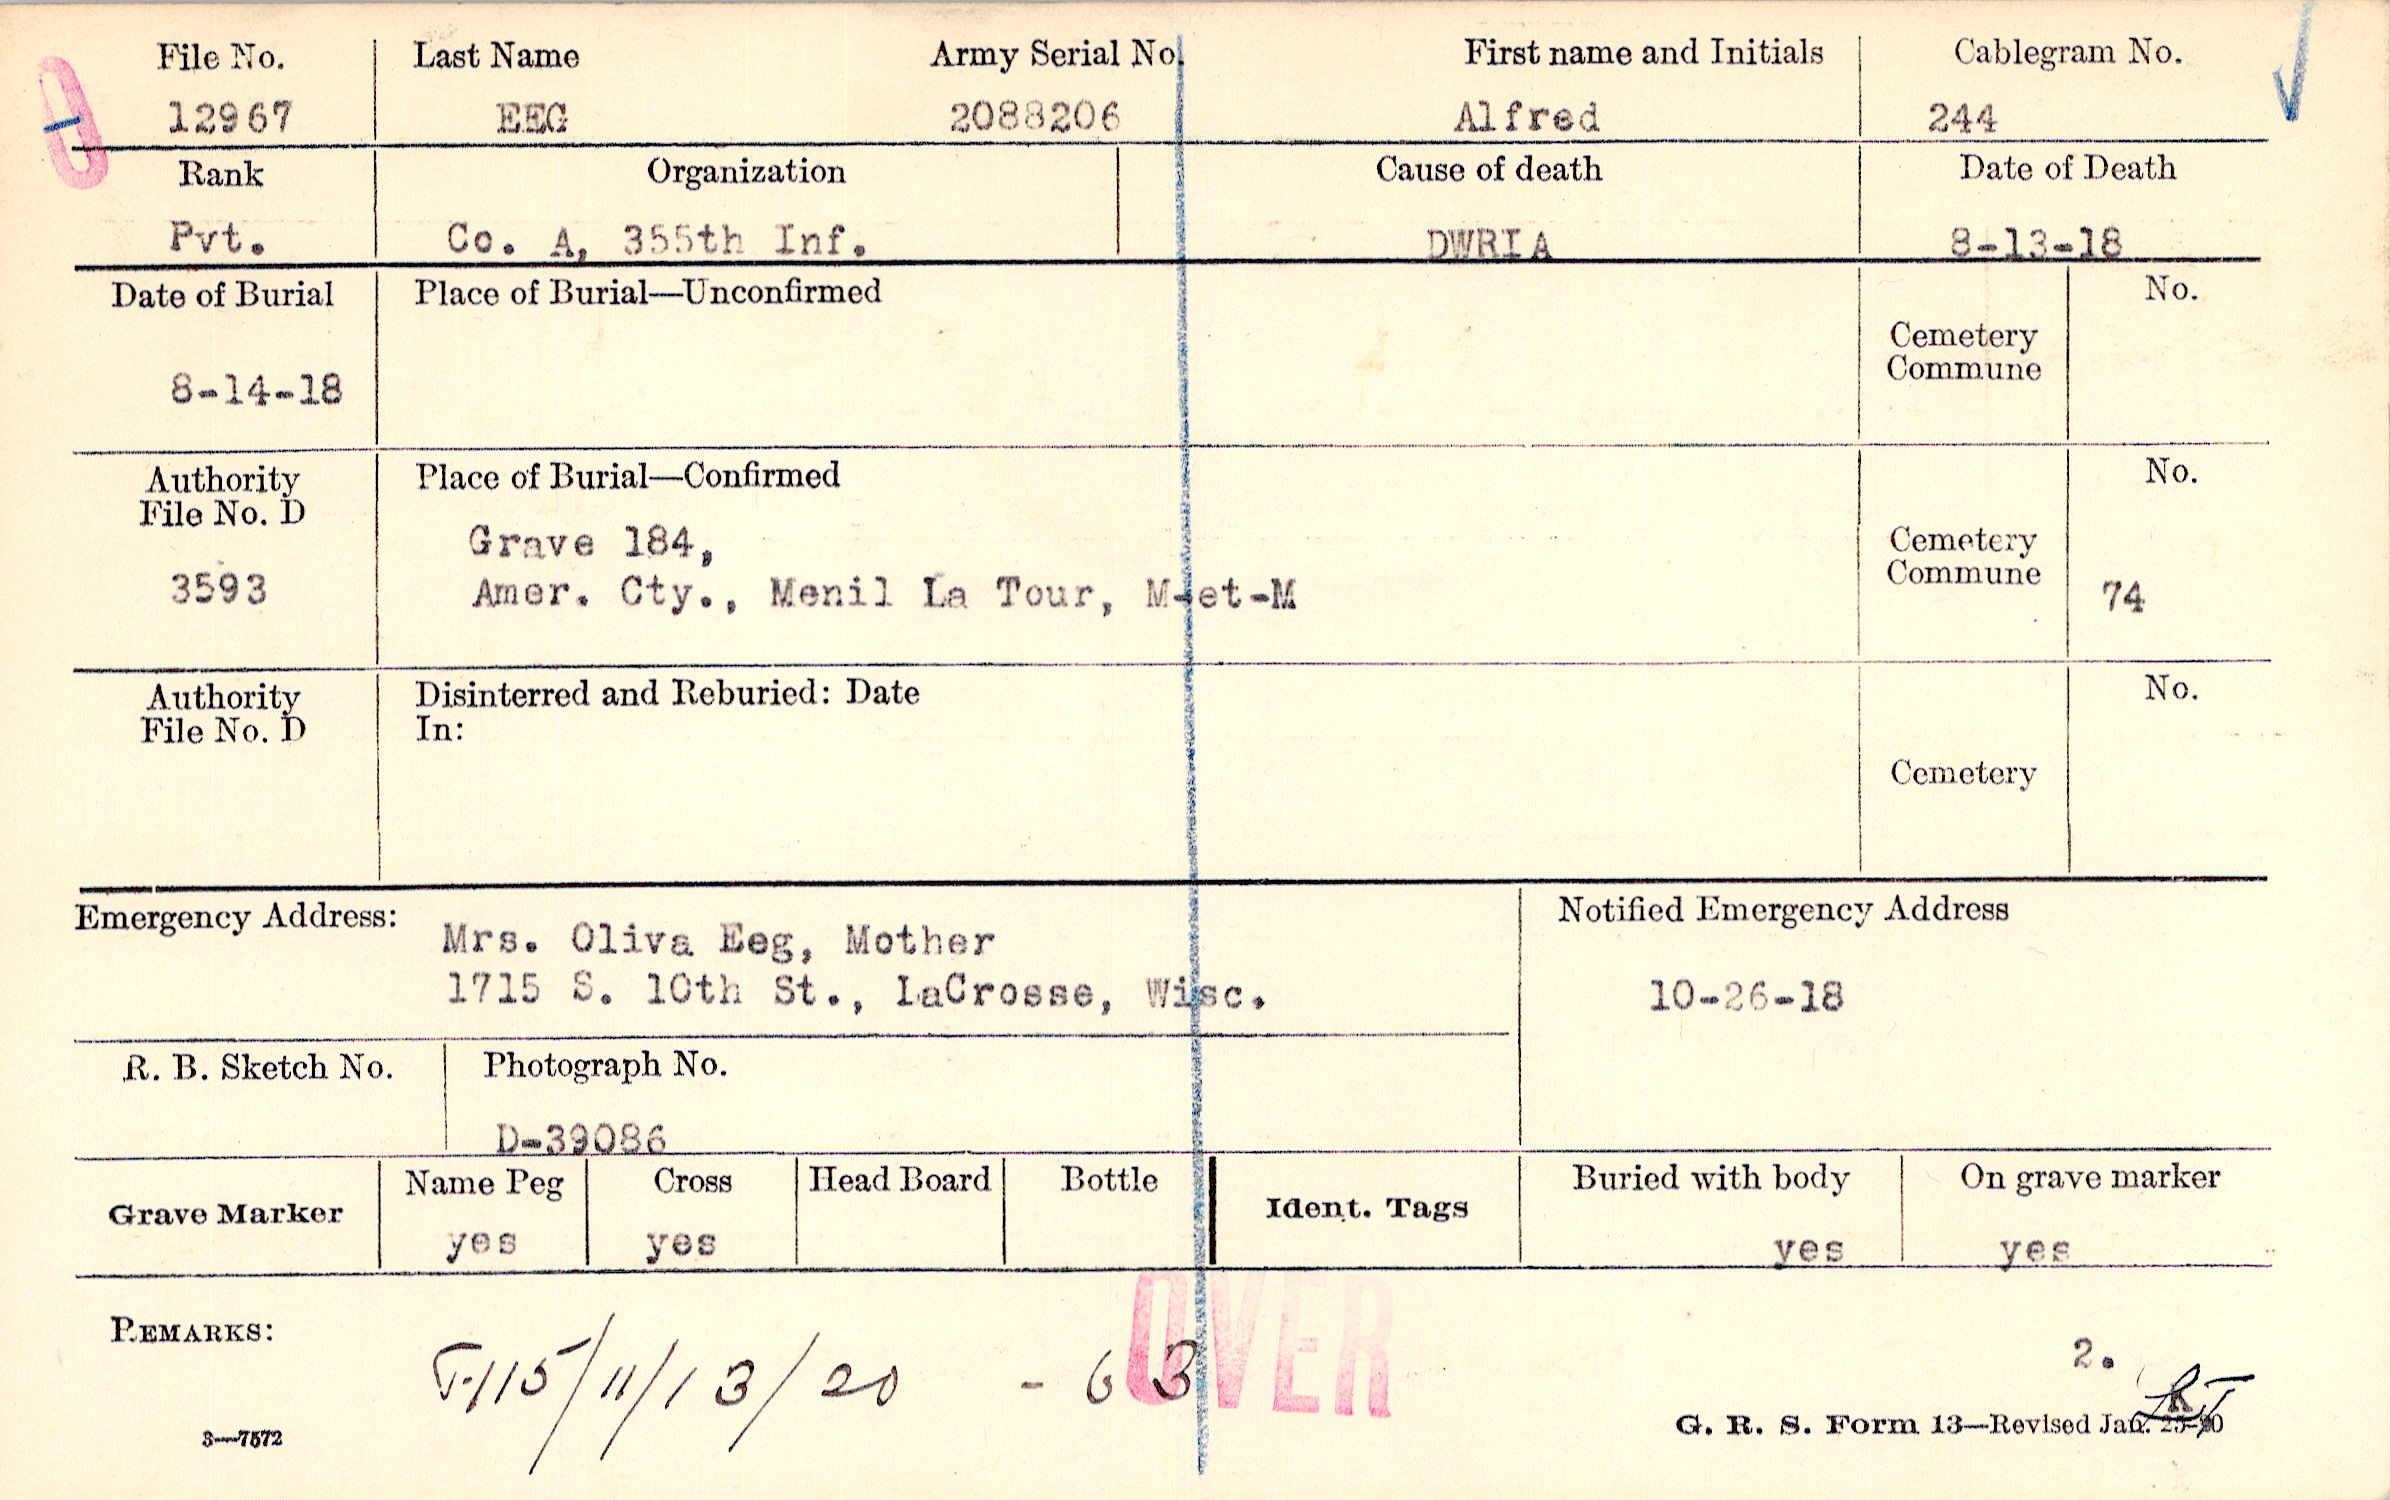 File No. Last Name Army Serial No. First name and Initials Cablegram No.
12967 EEG 2088206 Alfred 244
Rank Organization Cause of death Date of Death
Pvt. Co. A, 355th Inf. DWRIA 8-13-18
Date of Burial Place of Burial—Unconfirmed No.
Cemetery
Commune
8-14-18
Authority Place of Burial—Confirmed No.
File No. D
Grave 184, Cemetery
3593 Amer. Cty., Menil La Tour, M-et-M Commune 74
Authority Disinterred and Reburied: Date No.
File No. D In:
Cemetery
Emergency Address: Notified Emergency Address
Mrs. Oliva Eeg, Mother
1715 S. 10th St., LaCrosse, Wisc. 10-26-18
R. B. Sketch No. Photograph No.
D-39086
Grave Marker Name Peg Cross Head Board Bottle Ident. Tags Buried with body On grave marker
yes yes yes yes
OVER
REMARKS: 115/11/13/20 - 63 2.
3—7572 G. R. S. Form 13—Revised Jan.